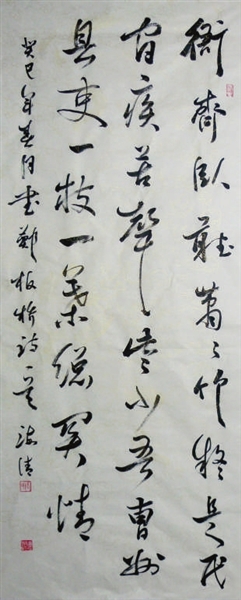 衙齋臥聽蕭々竹疑是民
間疾苦聲些小吾曹州
縣吏一枝一葉總關情
癸巳年春月書鄭板橋詩一首